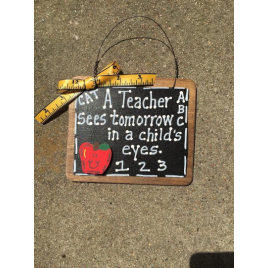 CAT A Teacher A
Sees tomorrow B
in a child's C
eyes.
1 2 3